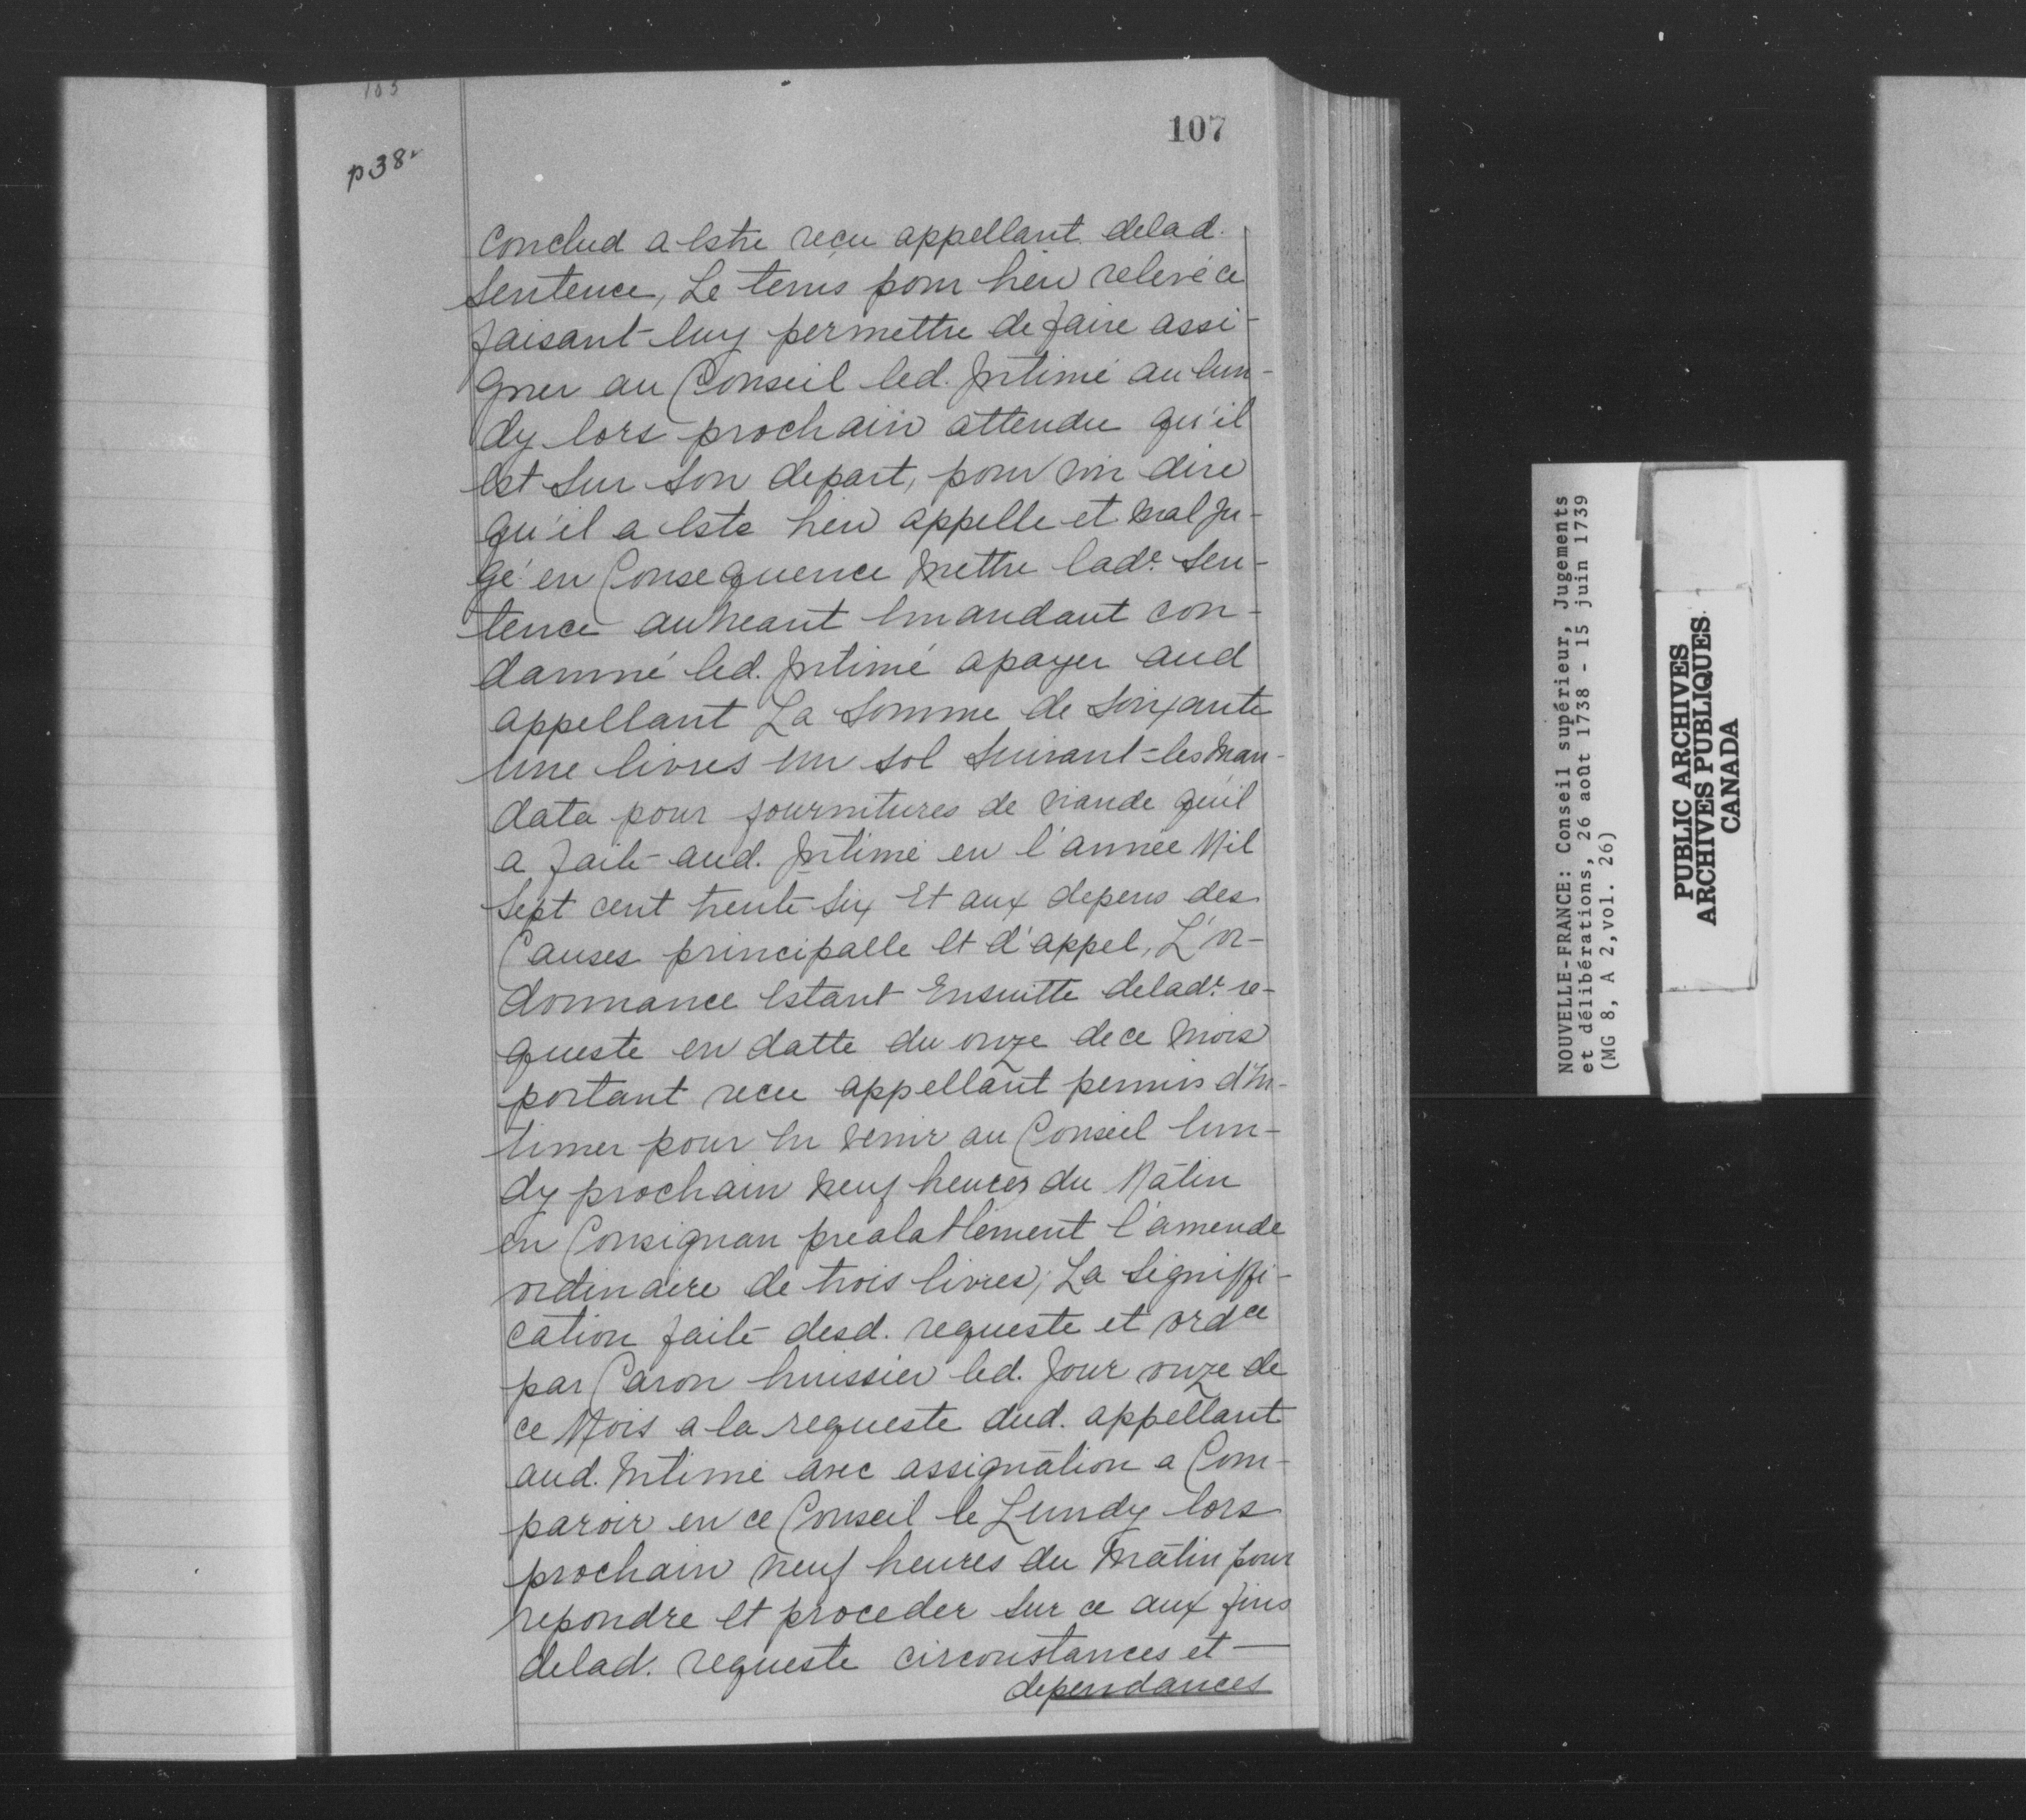 103
107
p 38v
Conclud a Estre reçu appellant delad.
Sentence, Le tenir pour bien relevé ce
faisant luy permettre de faire assi-
gner au Conseil led. Intimé au lun-
dy lors prochain attendu qu'il
Est sur son depart, pour voir dire
qu'il a Esté bien appellé et mal Ju-
gé en Consequence mettre lade. Sen-
tence au neant Emandant con-
damné led. Intimé a payer aud
appellant La somme de soixante
une livres un sol suivant les man-
data pour fournitures de viande qu'il
a faite aud. Intimé en l'année Mil
Sept cent trente six Et aux depens des
Causes principalle et d'appel, L'or-
donnance Estant Ensuitte delade. re-
queste en datte du onze de ce mois
portant recu appellant permis d'In-
timer pour En venir au Conseil lun-
dy prochain neuf heures du Matin
en Consignan prealablement l'amende
ordinaire de trois livres; La Signiffi-
cation faite desd. requeste et ordce
par Caron huissier led. Jour onze de
ce Mois a la requeste dud. appellant
aud. Intimé avec assignation a Com-
paroir en ce Conseil le Lundy lors
prochain neuf heures du Matin pour
repondre et proceder sur ce aux fins
delad. requeste circonstances et —
dependances
NOUVELLE-FRANCE: Conseil supérieur, Jugements
et délibérations, 26 août 1738 - 15 juin 1739
(MG 8, A 2,vol. 26)
PUBLIC ARCHIVES
ARCHIVES PUBLIQUES
CANADA